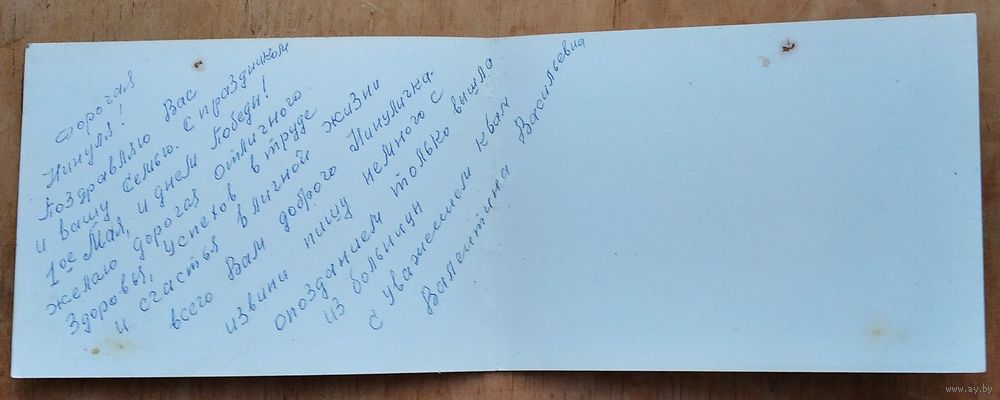 Дорогая
Нинуля!
Поздравляю Вас
и вашу семью. с праздником
1ое Мая, и днем Победы!
желаю дорогая отличного
Здоровья, успехов в труде
и счастья в личной жизни
всего Вам доброго Нинуличка.
извини пишу немного с
опозданием только вышла
из больници
с уважением к вам
Валентина Васильевна
www.ay.by